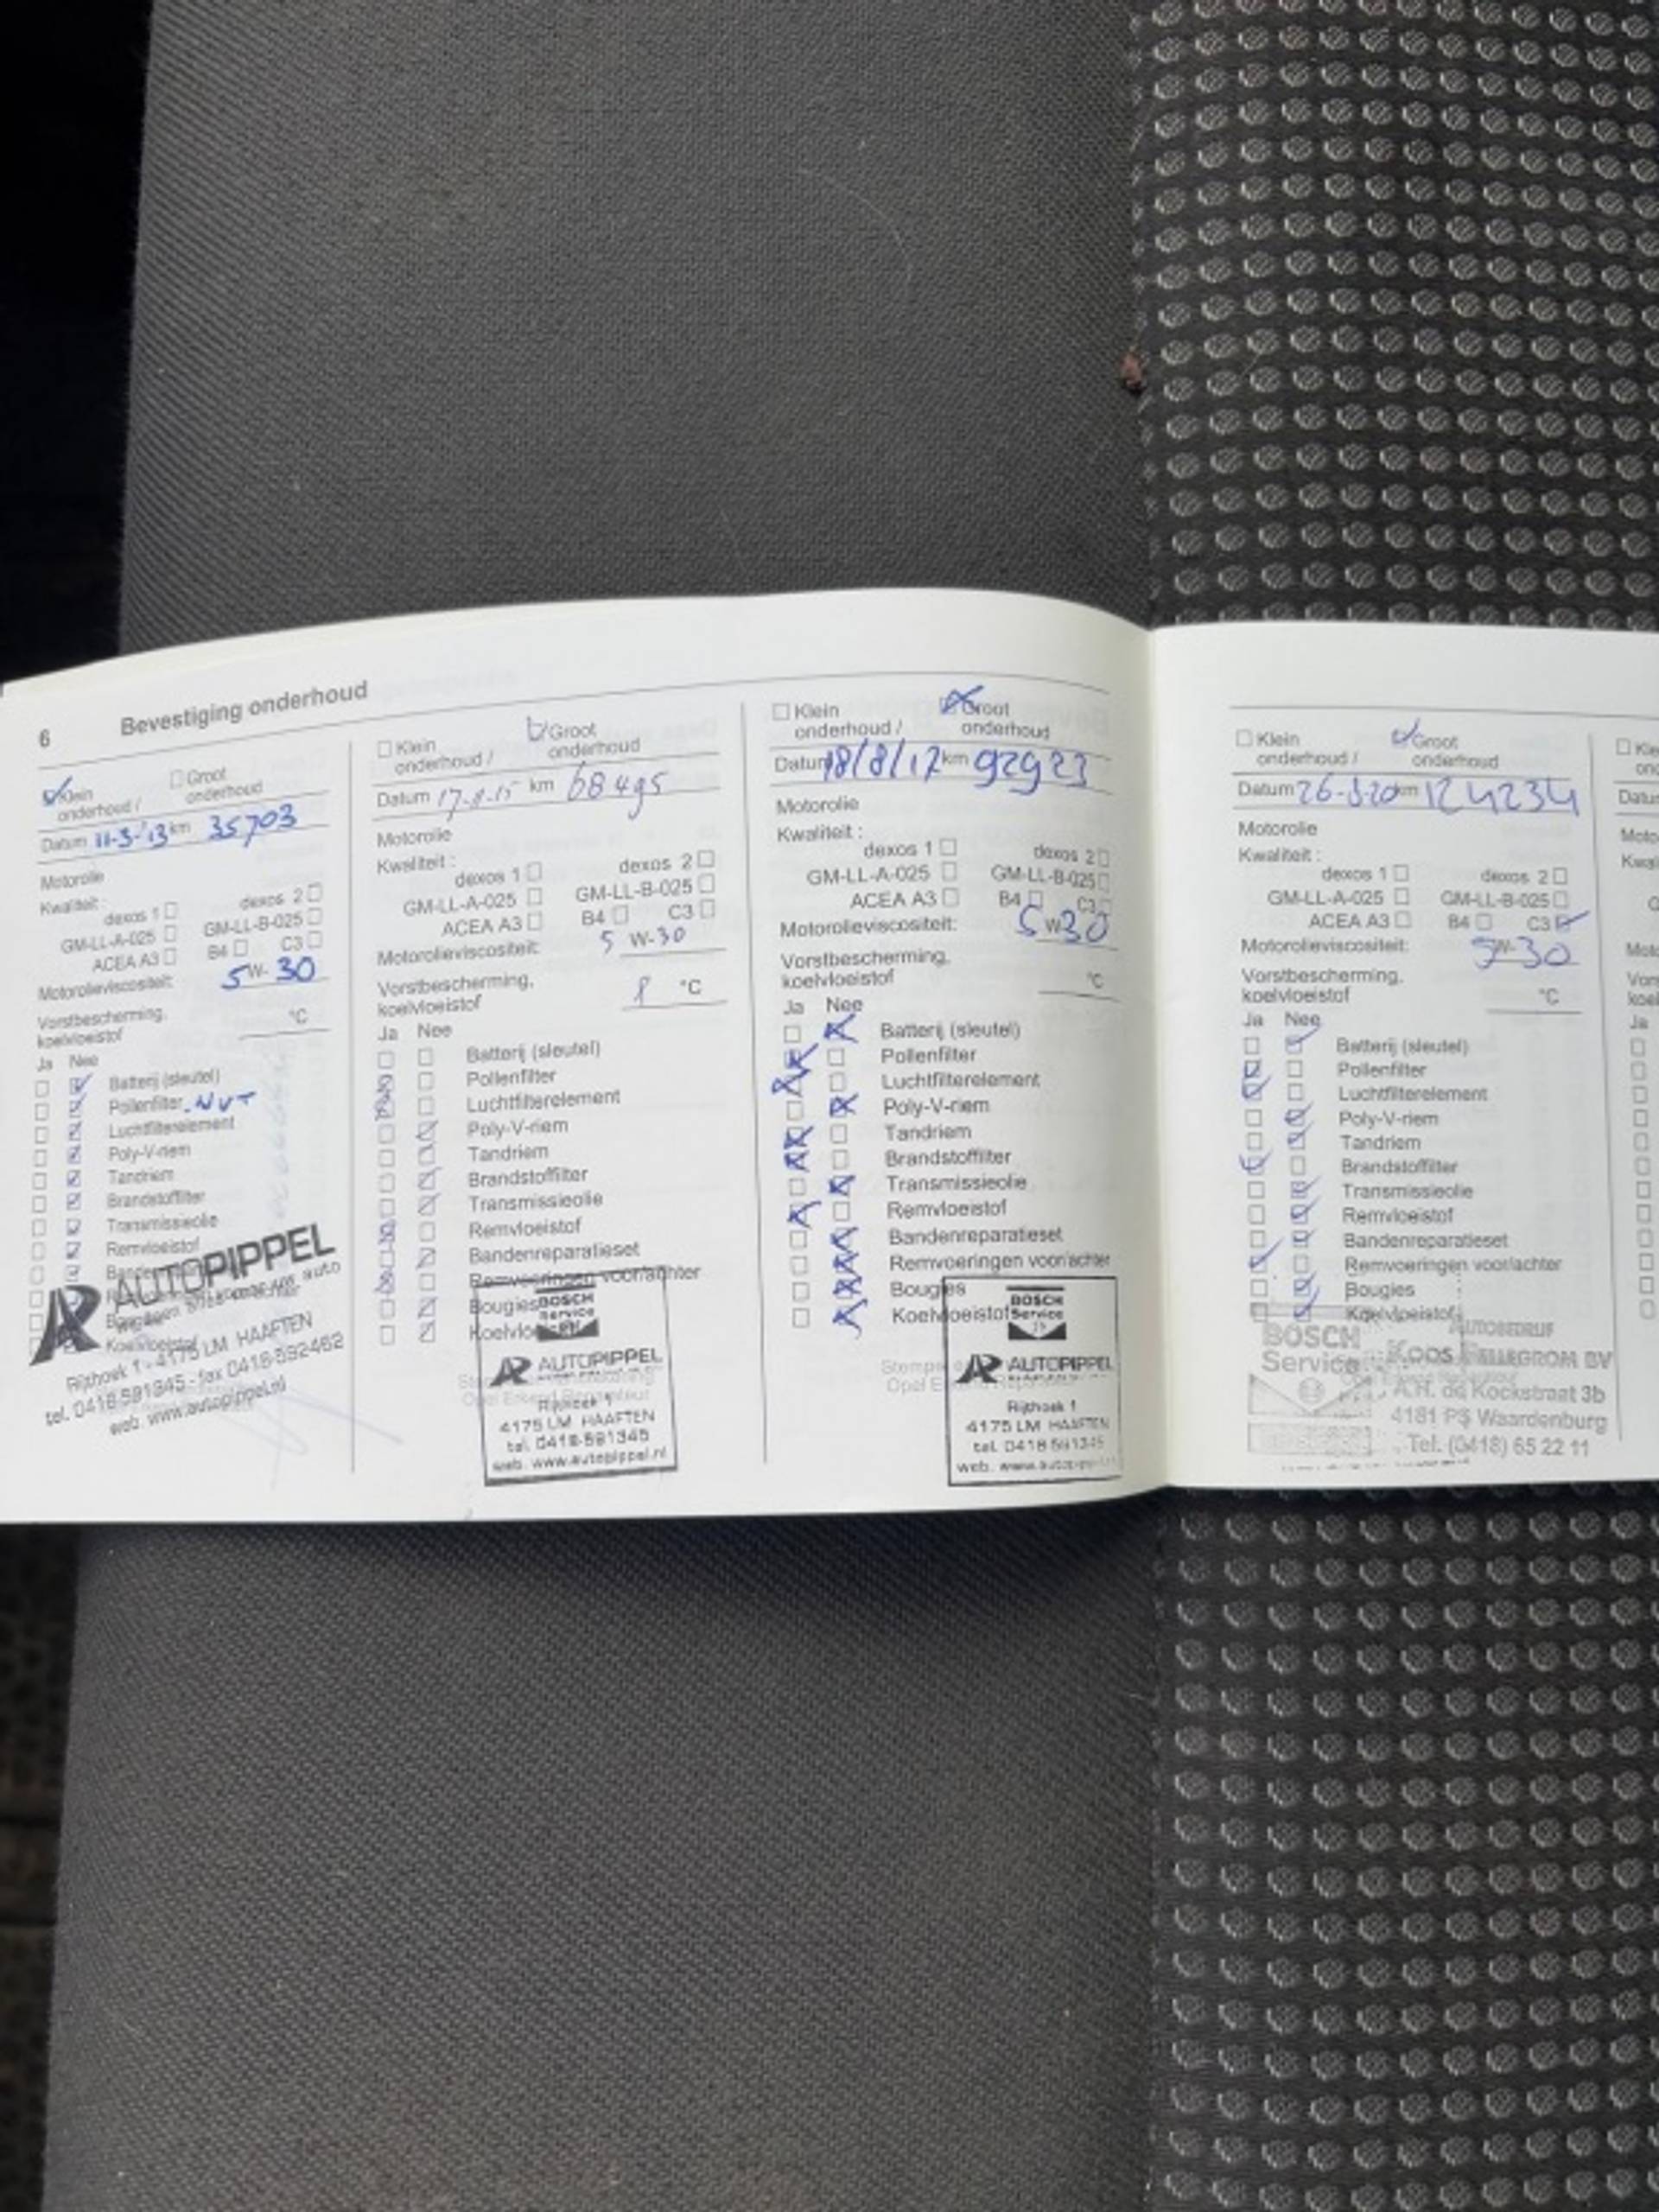 6 Bevestiging onderhoud
Klein onderhoud / Groot onderhoud
Datum 11-3-'13 km 35703
Motorolie
Kwaliteit:
dexos 1 dexos 2
GM-LL-A-025 GM-LL-B-025
ACEA A3 B4 C3
Motorolieviscositeit: 5 W- 30
Vorstbescherming,
koelvloeistof °C
Ja Nee
Batterij (sleutel)
Pollenfilter NVT
Luchtfilterelement
Poly-V-riem
Tandriem
Brandstoffilter
Transmissieolie
Remvloeistof
Koelvloeistof
AUTOPIPPEL
Rijthoek 1 - 4175 LM HAAFTEN
tel. 0418-591345 - fax 0418-592462
web. www.autopippel.nl
Klein onderhoud / Groot onderhoud
Datum 17-8-15 km 68495
Motorolie
Kwaliteit:
dexos 1 dexos 2
GM-LL-A-025 GM-LL-B-025
ACEA A3 B4 C3
Motorolieviscositeit: 5 W-30
Vorstbescherming,
koelvloeistof °C
Ja Nee
Batterij (sleutel)
Pollenfilter
Luchtfilterelement
Poly-V-riem
Tandriem
Brandstoffilter
Transmissieolie
Remvloeistof
Bandenreparatieset
Remvoeringen voor/achter
Bougies
BOSCH
Service
AUTOPIPPEL
Rijthoek 1
4175 LM HAAFTEN
tel. 0418-591345
web. www.autopippel.nl
Klein onderhoud / Groot onderhoud
Datum 18/8/17 km 92923
Motorolie
Kwaliteit:
dexos 1 dexos 2
GM-LL-A-025 GM-LL-B-025
ACEA A3 B4 C3
Motorolieviscositeit: 5 W30
Vorstbescherming,
koelvloeistof °C
Ja Nee
Batterij (sleutel)
Pollenfilter
Luchtfilterelement
Poly-V-riem
Tandriem
Brandstoffilter
Transmissieolie
Remvloeistof
Bandenreparatieset
Remvoeringen voor/achter
Bougies
Koelvloeistof
BOSCH
Service
AUTOPIPPEL
Rijthoek 1
4175 LM HAAFTEN
tel. 0418 591345
Klein onderhoud / Groot onderhoud
Datum 26-5-20 km 124234
Motorolie
Kwaliteit:
dexos 1 dexos 2
GM-LL-A-025 GM-LL-B-025
ACEA A3 B4 C3
Motorolieviscositeit: 5W-30
Vorstbescherming,
koelvloeistof °C
Ja Nee
Batterij (sleutel)
Pollenfilter
Luchtfilterelement
Poly-V-riem
Tandriem
Brandstoffilter
Transmissieolie
Remvloeistof
Bandenreparatieset
Remvoeringen voor/achter
Bougies
Koelvloeistof
BOSCH
Service
AUTOBEDRIJF
A.H. de Kockstraat 3b
4181 PS Waardenburg
Tel. (0418) 65 22 11